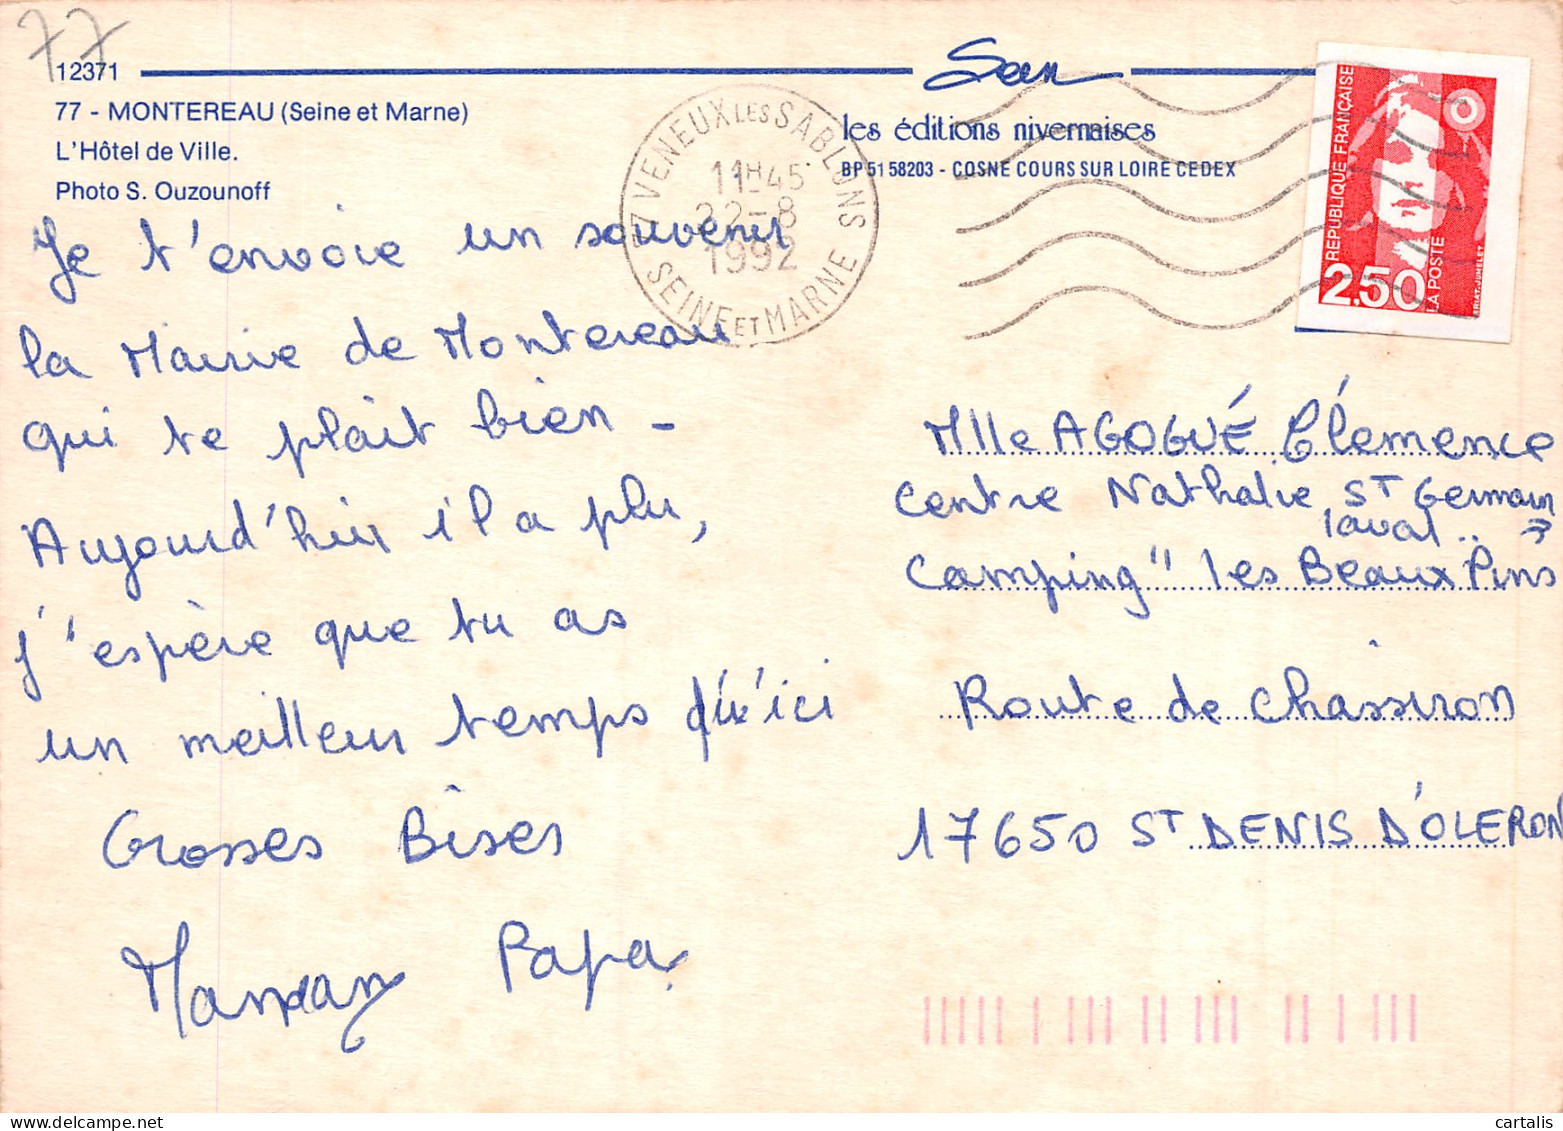 77
12371
77 - MONTEREAU (Seine et Marne)
L'Hôtel de Ville.
Photo S. Ouzounoff
les éditions nivernaises
BP 51 58203 - COSNE COURS SUR LOIRE CEDEX
77 VENEUX LES SABLONS
11H45
22-8
1992
SEINE ET MARNE
RÉPUBLIQUE FRANÇAISE
2.50
LA POSTE
BRIAT-JUMELET
Je t'envoie un souvenir
la Mairie de Montereau
qui te plait bien -
Aujourd'hui il a plu,
j'espère que tu as
un meilleur temps qu'ici
Grosses Bises
Maman Papa
Mlle AGOGUÉ Clémence
Centre Nathalie, ST Germain
laval ..
Camping " les Beaux Pins
Route de Chassiron
17650 ST DENIS D'OLERON
cartalis